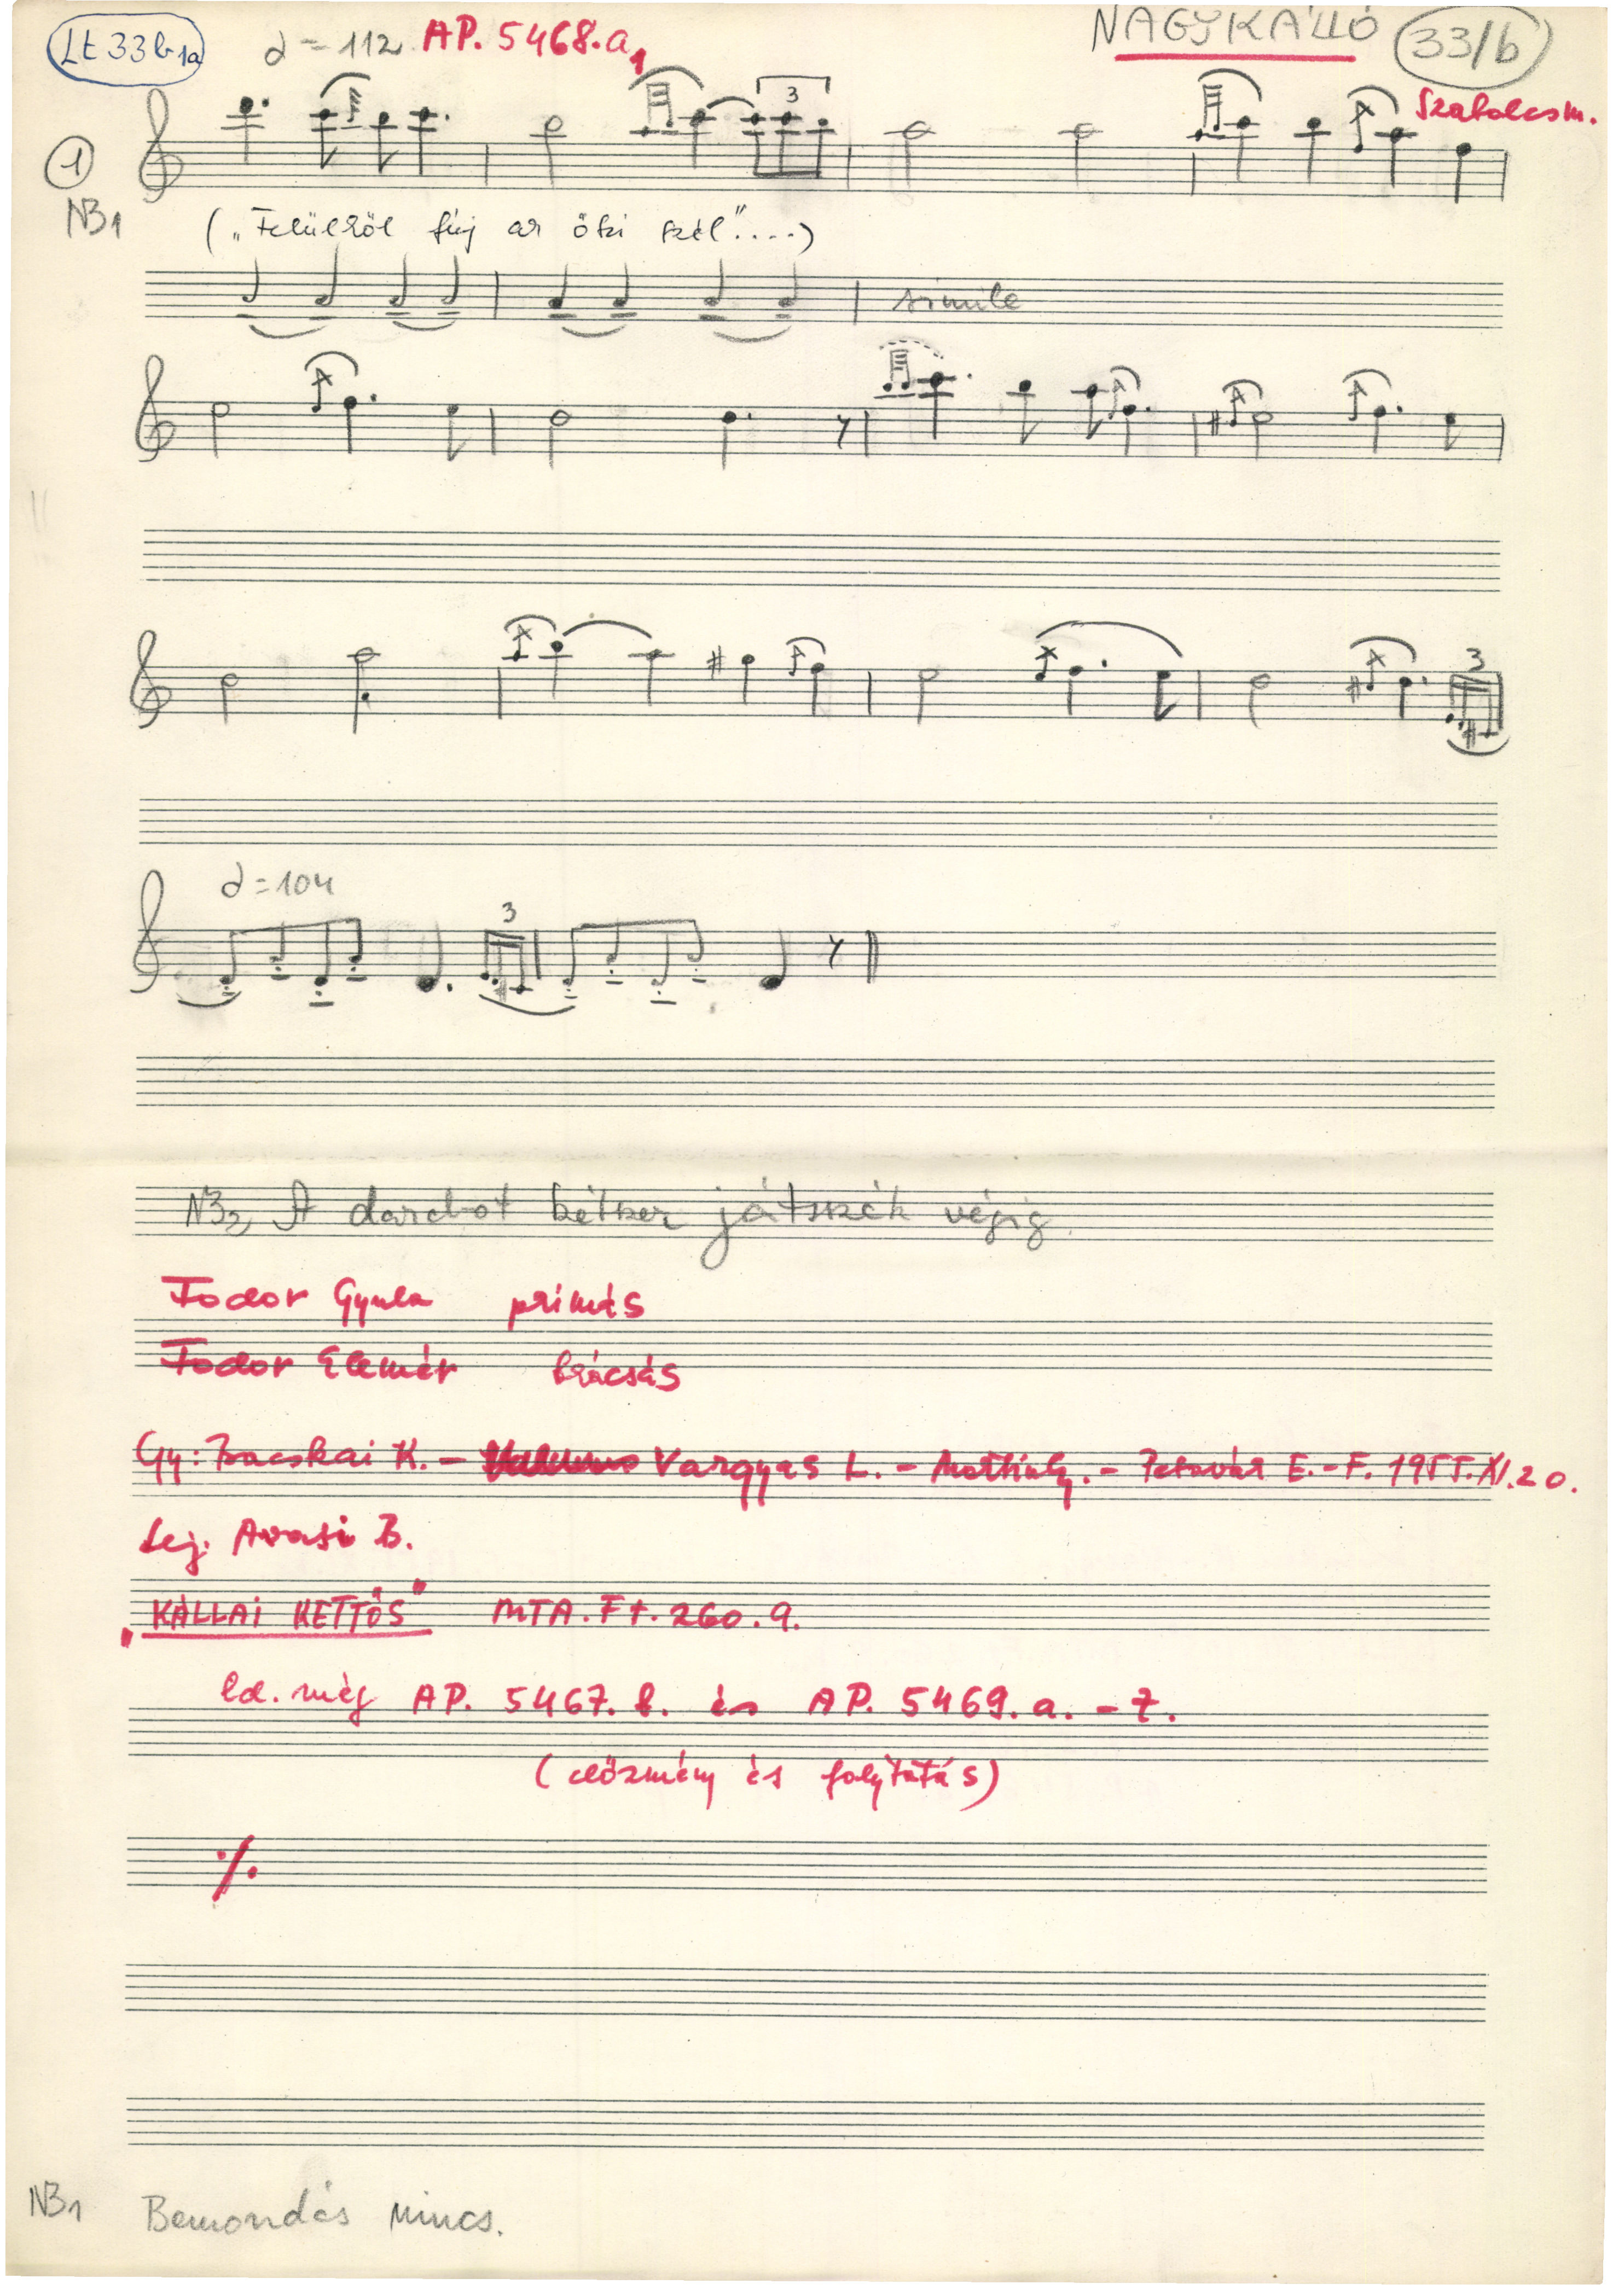 Lt 33b1a
𝅗𝅥 = 112 AP. 5468.a1
NAGYKÁLLÓ
33/b
Szabolcs m.
3
1
NB1
(„Felülről fúj az őszi szél"....)
simile
3
𝅗𝅥 = 104
3
NB2 A darabot kétszer játszák végig.
Fodor Gyula prímás
Fodor Elemér brácsás
Gy: Bacskai K. – Vargyas L. – – Pesovár E. – F. 1955.XI.20.
Lej. Avasi B.
„KÁLLAI KETTŐS" MTA. Ft. 260.9.
ld. még AP. 5467.b. és AP. 5469.a. – z.
(előzmény és folytatás)
./.
NB1 Bemondás nincs.